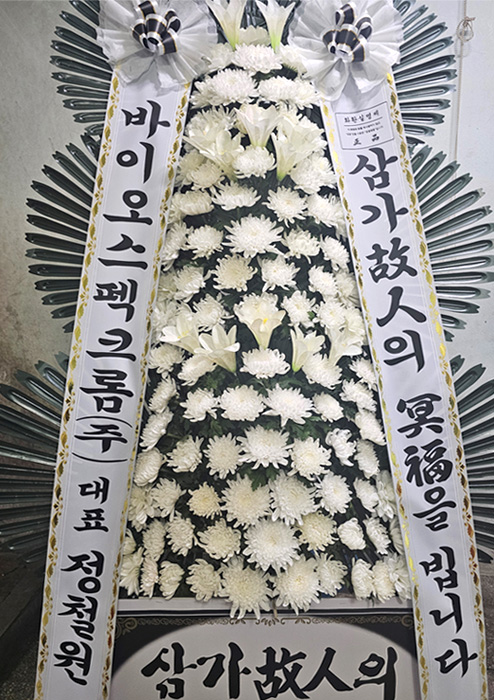 바이오스펙크롬(주) 대표 정철원
화환실명제
正品
삼가故人의 冥福을 빕니다
삼가故人의